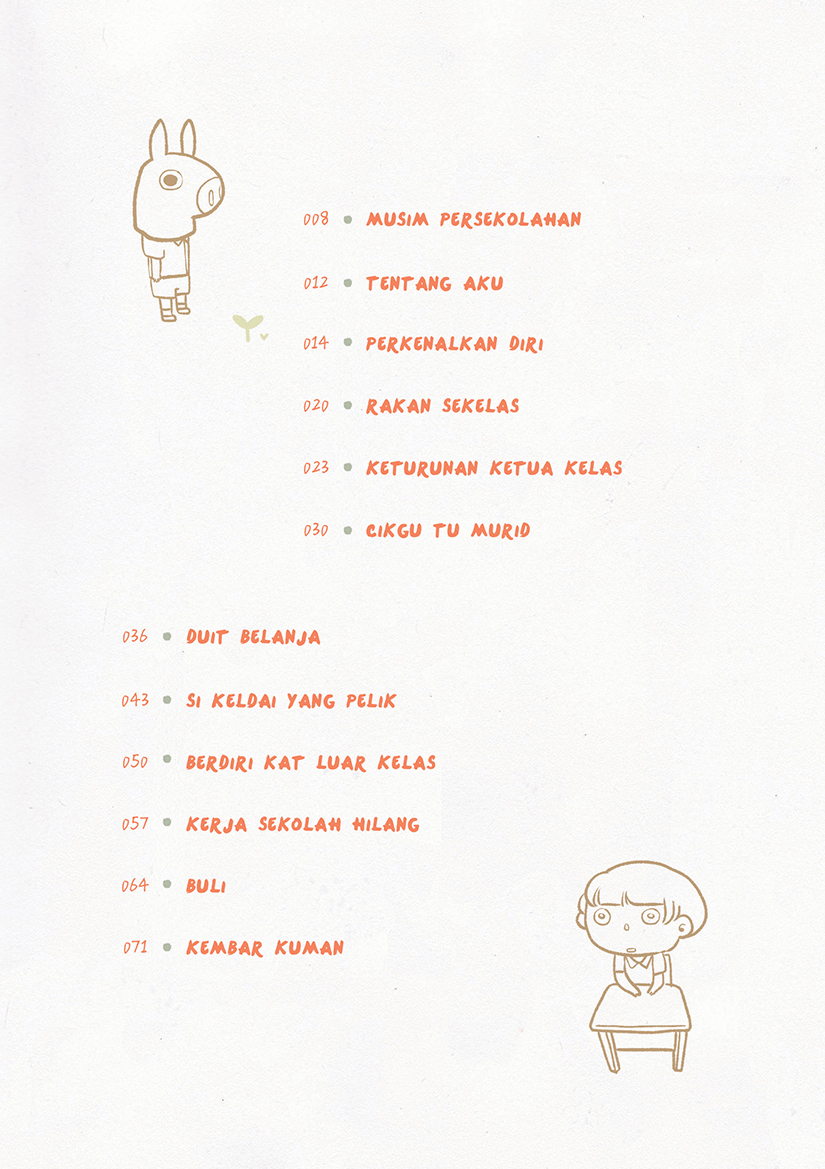 008 • MUSIM PERSEKOLAHAN
012 • TENTANG AKU
014 • PERKENALKAN DIRI
020 • RAKAN SEKELAS
023 • KETURUNAN KETUA KELAS
030 • CIKGU TU MURID
036 • DUIT BELANJA
043 • SI KELDAI YANG PELIK
050 • BERDIRI KAT LUAR KELAS
057 • KERJA SEKOLAH HILANG
064 • BULI
071 • KEMBAR KUMAN